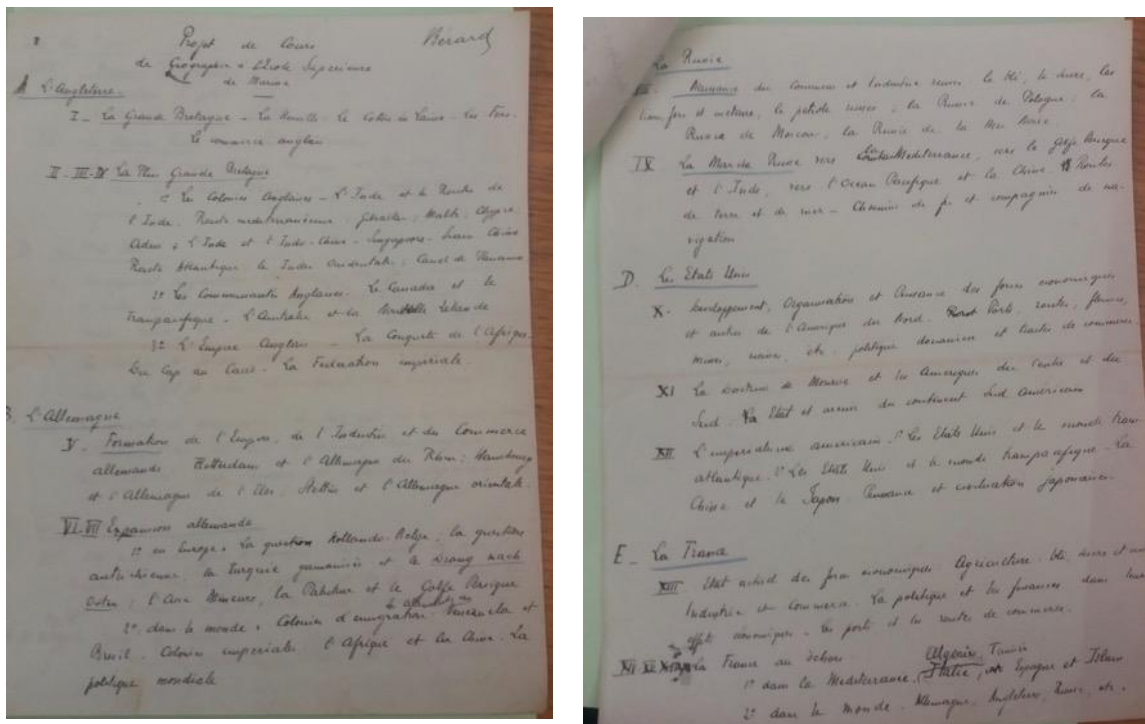 Projet de Cours Bérard
de Géographie à l'Ecole Supérieure
de Marine
A L'Angleterre.
I_ La Grande Bretagne _ La Houille. Le Coton la Laine. Les Fers.
Le commerce anglais
II_III_IV La Plus Grande Bretagne
1º Les Colonies Anglaises _ L'Inde et la Route de
l'Inde. Route méditerranéenne: Gibraltar, Malte, Chypre
Aden. L'Inde et l'Indo-Chine. Singapoore.
Route Atlantique. les Indes Occidentales. Canal de Panama
2º Les Communautés Anglaises. Le Canada et le
Transpacifique. L'Australie et la Nouvelle Zélande
3º L'Empire Anglais _ La Conquête de l'Afrique.
Du Cap au Caire. La Fédération impériale.
B. L'Allemagne
V. Formation de l'Empire, de l'Industrie et du Commerce
allemands. Rotterdam et l'Allemagne du Rhin; Hambourg
et l'Allemagne de l'Elbe; Stettin et l'Allemagne orientale.
VI_VII Expansion allemande
1º en Europe. La question Hollando-Belge; la question
autrichienne, la Turquie germanisée et le Drang nach
Osten; l'Asie Mineure, la Palestine et le Golfe Persique
2º dans le monde. Colonies d'émigration. Venezuela et
Brésil. Colonies impériales l'Afrique et la Chine. La
politique mondiale
La Russie
Naissance du Commerce et Industrie russes. le blé, le sucre, les
le pétrole russes; la Russie de Pologne; la
Russie de Moscou, la Russie de la Mer Noire.
IX La Marche Russe vers la Méditerranée, vers le golfe Persique
et l'Inde, vers l'Océan Pacifique et la Chine. Routes
de terre et de mer _ Chemins de fer et compagnies de na-
vigation
D. Les Etats Unis
X. Développement, Organisation et Puissance des forces économiques
et autres de l'Amérique du Nord. Ports, routes, fleuves,
mines, usines, etc. politique douanière et traités de commerce.
XI La Doctrine de Monroe et les Amériques du Centre et du
Sud. Etat et avenir du continent Sud Américain
XII L'impérialisme américain. 1º Les Etats Unis et le monde trans-
atlantique. 2º Les Etats Unis et le monde transpacifique. La
Chine et le Japon. Puissance et civilisation japonaises.
E_ La France
XIII Etat actuel des forces économiques Agriculture. blé, sucre et vin
Industrie et Commerce. La politique et les finances dans leurs
effets économiques. les ports et les routes de commerce.
La France au dehors. Algérie, Tunisie
1º dans la Méditerranée. Italie, Espagne et Islam
2º dans le monde. Allemagne, Angleterre, Russie, etc.